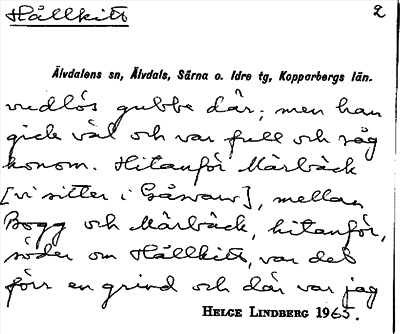 Hållkitt 2
Älvdalens sn, Älvdals, Särna o. Idre tg, Kopparbergs län.
vedlös gubbe där; men han
gick väl och var full och såg
konom. Hitanför Mårbäck
[vi sitter i Gåsvarv], mellan
Bogg och Mårbäck, hitanför,
söder om Hållkitt, var det
förr en grind och där var jag
HELGE LINDBERG 1965.